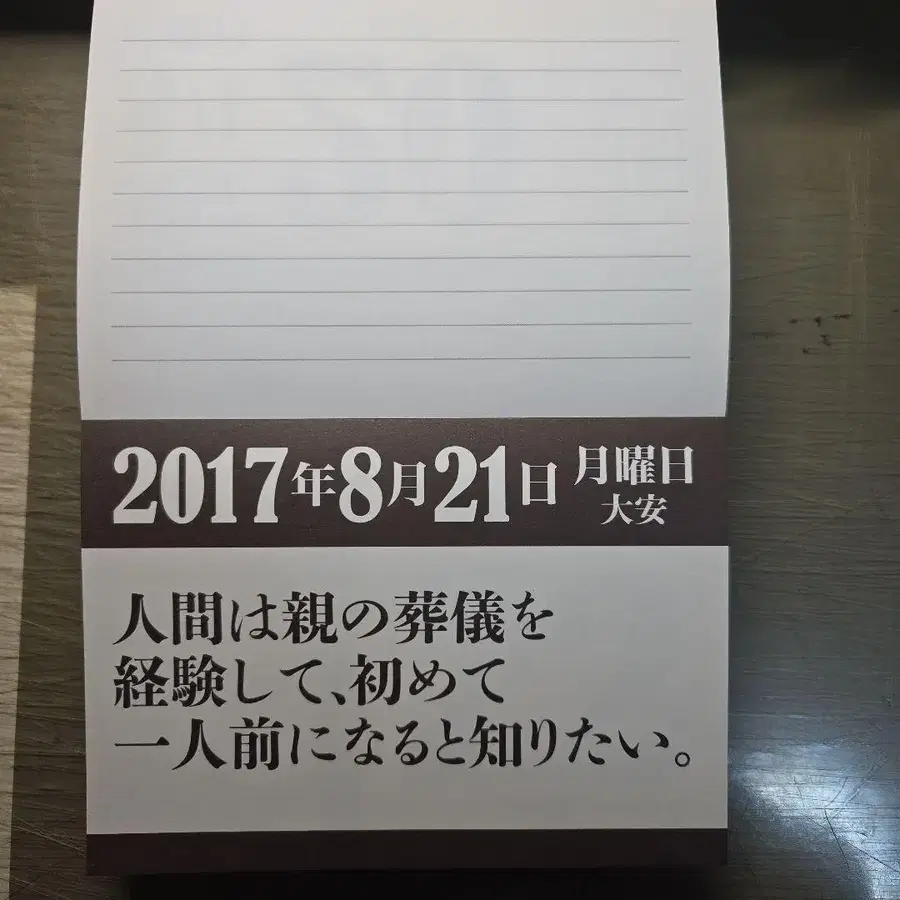 2017年8月21日 月曜日
大安
人間は親の葬儀を
経験して、初めて
一人前になると知りたい。